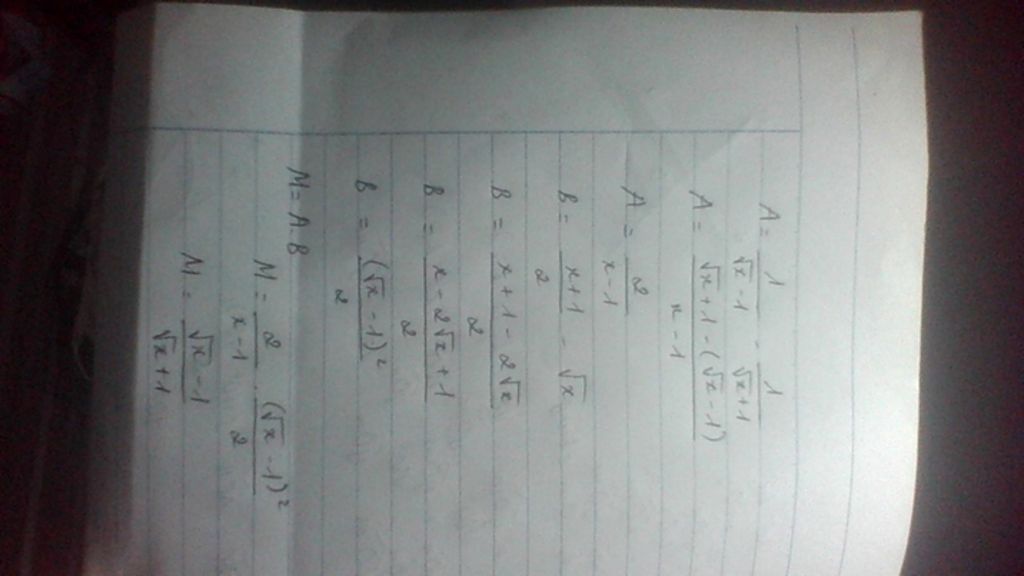 A = 1/(√x - 1) - 1/(√x + 1)
A = (√x + 1 - (√x - 1))/(x - 1)
A = 2/(x - 1)
B = (x + 1)/2 - √x
B = (x + 1 - 2√x)/2
B = (x - 2√x + 1)/2
B = (√x - 1)²/2
M = A.B
M = 2/(x - 1) . (√x - 1)²/2
M = (√x - 1)/(√x + 1)